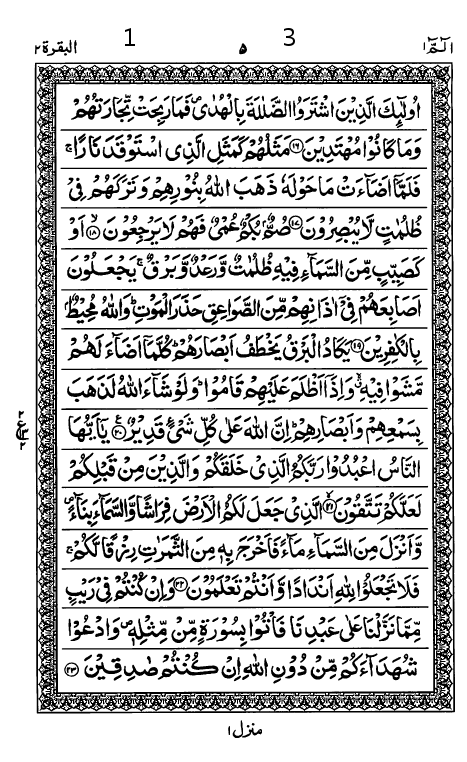 البقرة ٢ 1 ٥ 3 الٓمّٓ ١
اُولٰٓئِكَ الَّذِيْنَ اشْتَرَوُا الضَّلٰلَةَ بِالْهُدٰى ۪ فَمَا رَبِحَتْ تِّجَارَتُهُمْ
وَمَا كَانُوْا مُهْتَدِيْنَ ﴿۱۶﴾ مَثَلُهُمْ كَمَثَلِ الَّذِى اسْتَوْقَدَ نَارًا ۚ
فَلَمَّاۤ اَضَآءَتْ مَا حَوْلَهٗ ذَهَبَ اللّٰهُ بِنُوْرِهِمْ وَتَرَكَهُمْ فِىْ
ظُلُمٰتٍ لَّا يُبْصِرُوْنَ ﴿۱۷﴾ صُمٌّۢ بُكْمٌ عُمْىٌ فَهُمْ لَا يَرْجِعُوْنَ ﴿۱۸﴾ ۙ اَوْ
كَصَيِّبٍ مِّنَ السَّمَآءِ فِيْهِ ظُلُمٰتٌ وَّرَعْدٌ وَّبَرْقٌ ۚ يَجْعَلُوْنَ
اَصَابِعَهُمْ فِىْۤ اٰذَانِهِمْ مِّنَ الصَّوَاعِقِ حَذَرَ الْمَوْتِ ؕ وَاللّٰهُ مُحِيْطٌۢ
بِالْكٰفِرِيْنَ ﴿۱۹﴾ يَكَادُ الْبَرْقُ يَخْطَفُ اَبْصَارَهُمْ ؕ كُلَّمَاۤ اَضَآءَ لَهُمْ
مَّشَوْا فِيْهِ ۙ وَاِذَاۤ اَظْلَمَ عَلَيْهِمْ قَامُوْا ؕ وَلَوْ شَآءَ اللّٰهُ لَذَهَبَ
بِسَمْعِهِمْ وَاَبْصَارِهِمْ ؕ اِنَّ اللّٰهَ عَلٰى كُلِّ شَىْءٍ قَدِيْرٌ ﴿۲۰﴾ يٰۤاَيُّهَا
النَّاسُ اعْبُدُوْا رَبَّكُمُ الَّذِىْ خَلَقَكُمْ وَالَّذِيْنَ مِنْ قَبْلِكُمْ
لَعَلَّكُمْ تَتَّقُوْنَ ﴿۲۱﴾ ۙ الَّذِىْ جَعَلَ لَكُمُ الْاَرْضَ فِرَاشًا وَّالسَّمَآءَ بِنَآءً ۪
وَّاَنْزَلَ مِنَ السَّمَآءِ مَآءً فَاَخْرَجَ بِهٖ مِنَ الثَّمَرٰتِ رِزْقًا لَّكُمْ ۚ
فَلَا تَجْعَلُوْا لِلّٰهِ اَنْدَادًا وَّاَنْتُمْ تَعْلَمُوْنَ ﴿۲۲﴾ وَاِنْ كُنْتُمْ فِىْ رَيْبٍ
مِّمَّا نَزَّلْنَا عَلٰى عَبْدِنَا فَاْتُوْا بِسُوْرَةٍ مِّنْ مِّثْلِهٖ ۪ وَادْعُوْا
شُهَدَآءَكُمْ مِّنْ دُوْنِ اللّٰهِ اِنْ كُنْتُمْ صٰدِقِيْنَ ﴿۲۳﴾
منزل ١